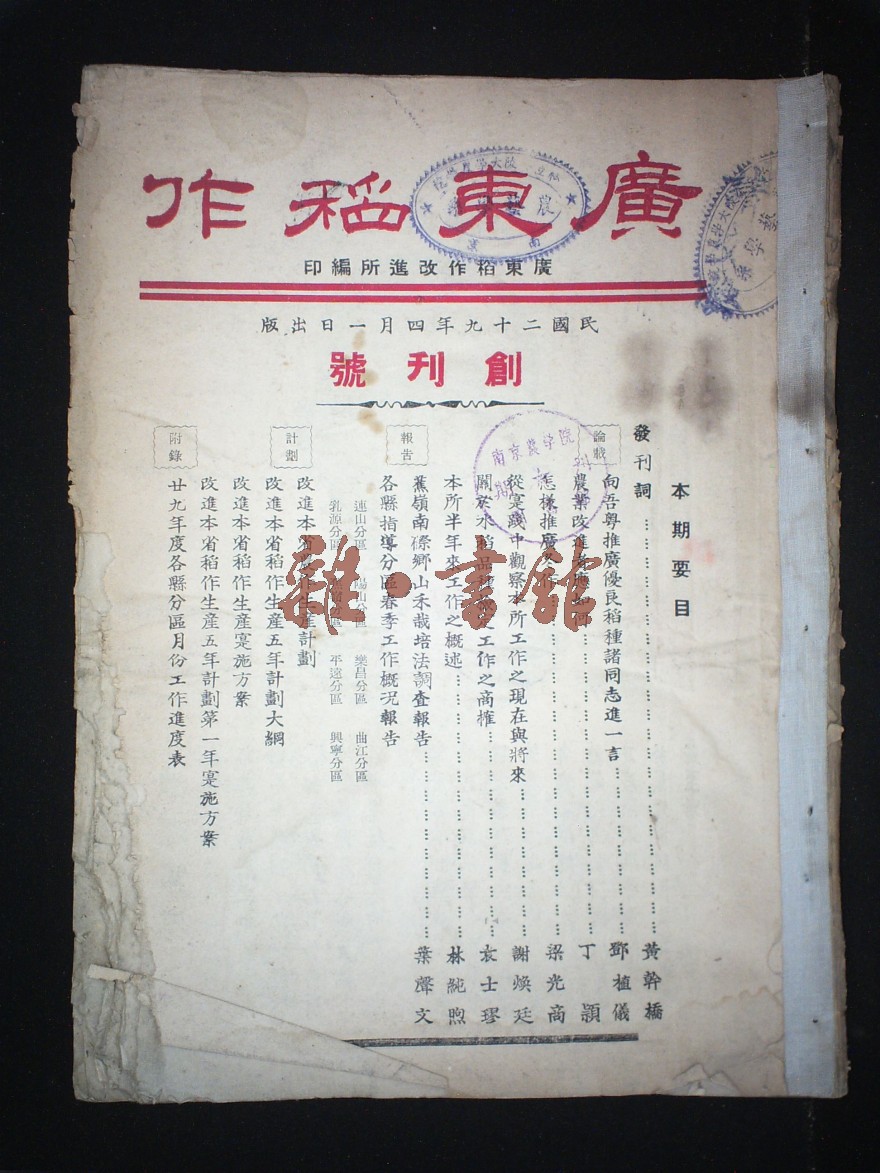 廣東稻作
廣東稻作改進所編印
民國二十九年四月一日出版
創刊號
本期要目
發刊詞……黃幹橋
論載
向吾粵推廣優良稻種諸同志進一言……鄧植儀
農業改進者應如何……丁穎
怎樣推廣冬作……梁光商
從寔踐中觀察本所工作之現在與將來……謝煥廷
關於水稻品種工作之商榷……袁士璆
本所半年來工作之概述……林純煦
報告
蕉嶺南磜鄉山禾栽培法調查報告……葉聲文
各縣指導分區春季工作概况報告
連山分區 陽山分區 樂昌分區 曲江分區
乳源分區 分區 平遠分區 興寧分區
計劃
改進本省農作生產計劃
改進本省稻作生產五年計劃大綱
改進本省稻作生產寔施方案
改進本省稻作生產五年計劃第一年寔施方案
附錄
廿九年度各縣分區月份工作進度表
南京農學院
雜·書館